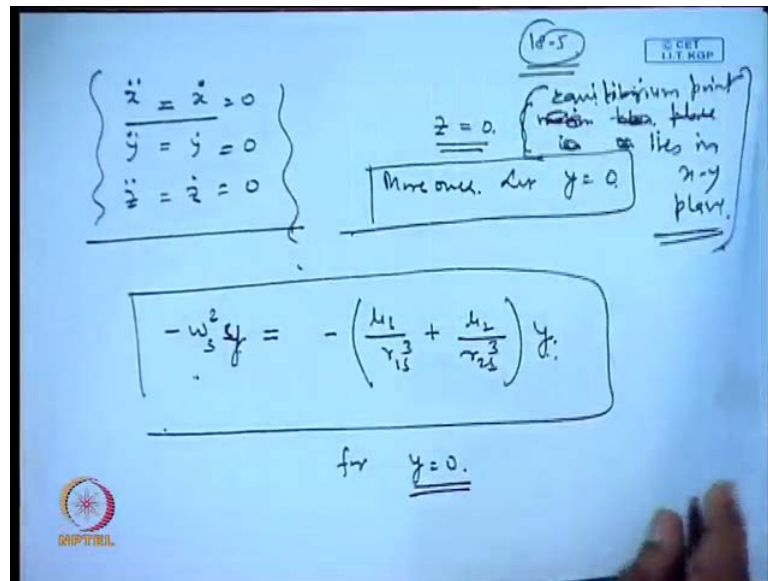 18-5
© CET
I.I.T. KGP
ẍ = ẋ = 0
ÿ = ẏ = 0
z̈ = ż = 0
z = 0.
equilibrium point
lies in
x-y
plane.
Moreover. Let y = 0.
-ω_s^2 y = -(μ_1/r_{1s}^3 + μ_2/r_{2s}^3) y.
for y = 0.
NPTEL